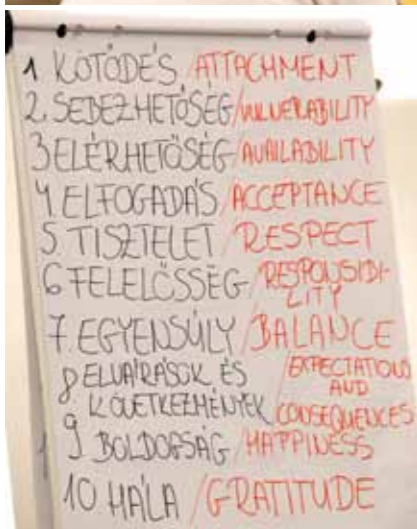 1. KÖTŐDÉS /ATTACHMENT
2. SEBEZHETŐSÉG/VULNERABILITY
3 ELÉRHETŐSÉG/AVAILABILITY
4 ELFOGADÁS/ACCEPTANCE
5 TISZTELET/RESPECT
6 FELELŐSSÉG/RESPONSIBI-
LITY
7. EGYENSÚLY/BALANCE
8 ELVÁRÁSOK ÉS /EXPECTATIONS
AND
KÖVETKEZMÉNYEK/CONSEQUENCES
9 BOLDOGSÁG/HAPPINESS
10 HÁLA /GRATITUDE